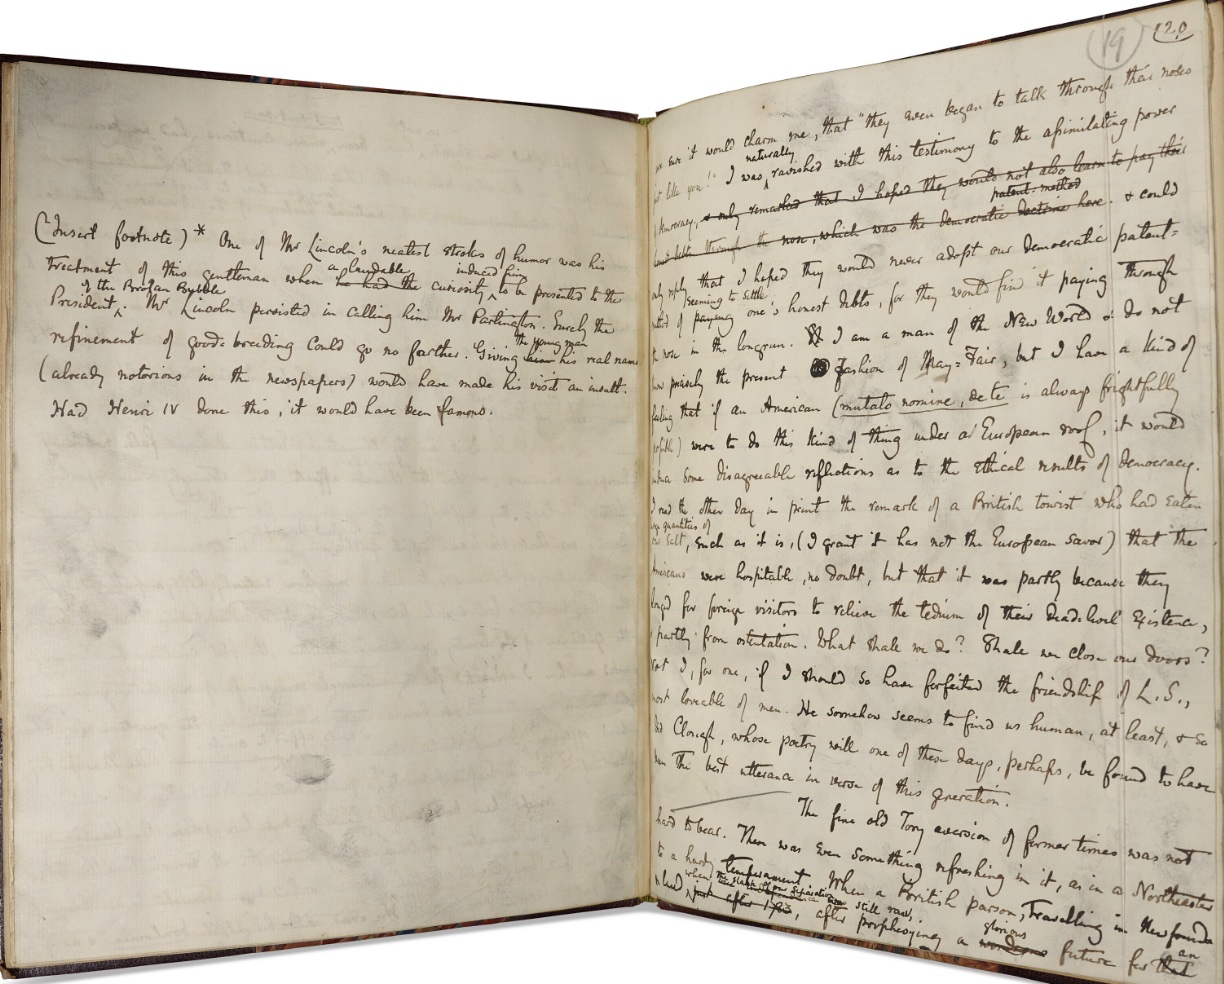 (Insert footnote) * One of Mr Lincoln's neatest strokes of humor was his
treatment of this gentleman when he had the curiosity to be presented to the
a laudable induced him
President. Mr Lincoln persisted in calling him Mr Partington. Surely the
of the Broken Bubble
refinement of good-breeding could go no farther. Giving him his real name
the young man
(already notorious in the newspapers) would have made his visit an insult.
Had Henri IV done this, it would have been famous.
19
120
sure it would charm me, that "they were began to talk through their noses
just like you!" I was ravished with this testimony to the assimilating power
naturally
Democracy, & only remarked that I hoped they would not also learn to pay their
debts through the nose, which was the democratic doctrine here. & could
patent-method
only reply that I hoped they would never adopt our democratic patent-
method of paying one's honest debts, for they would find it paying through
seeming to settle
the nose in the longrun. I am a man of the New World & do not
know precisely the present fashion of May-Fair, but I have a kind of
feeling that if an American (mutato nomine, de te is always frightfully
possible) were to do this kind of thing under a European roof, it would
induce some disagreeable reflections as to the ethical results of democracy.
I read the other day in print the remark of a British tourist who had eaten
quantities of
our salt, such as it is, (I grant it has not the European savor) that the
Americans were hospitable, no doubt, but that it was partly because they
longed for foreign visitors to relieve the tedium of their dead-level existence,
& partly from ostentation. What shall we do? Shall we close our doors?
Not I, for one, if I should so have forfeited the friendship of L. S.,
most loveable of men. He somehow seems to find us human, at least, & so
did Clough, whose poetry will one of these days, perhaps, be found to have
been the best utterance in verse of this generation.
The fine old Tory aversion of former times was not
hard to bear. There was even something refreshing in it, as in a Northeaster
to a hardy temperament. When a British parson, travelling in Newfoundland
when the slash of our separation was still raw,
after 1783, after prophesying a wondrous future for that
glorious
an